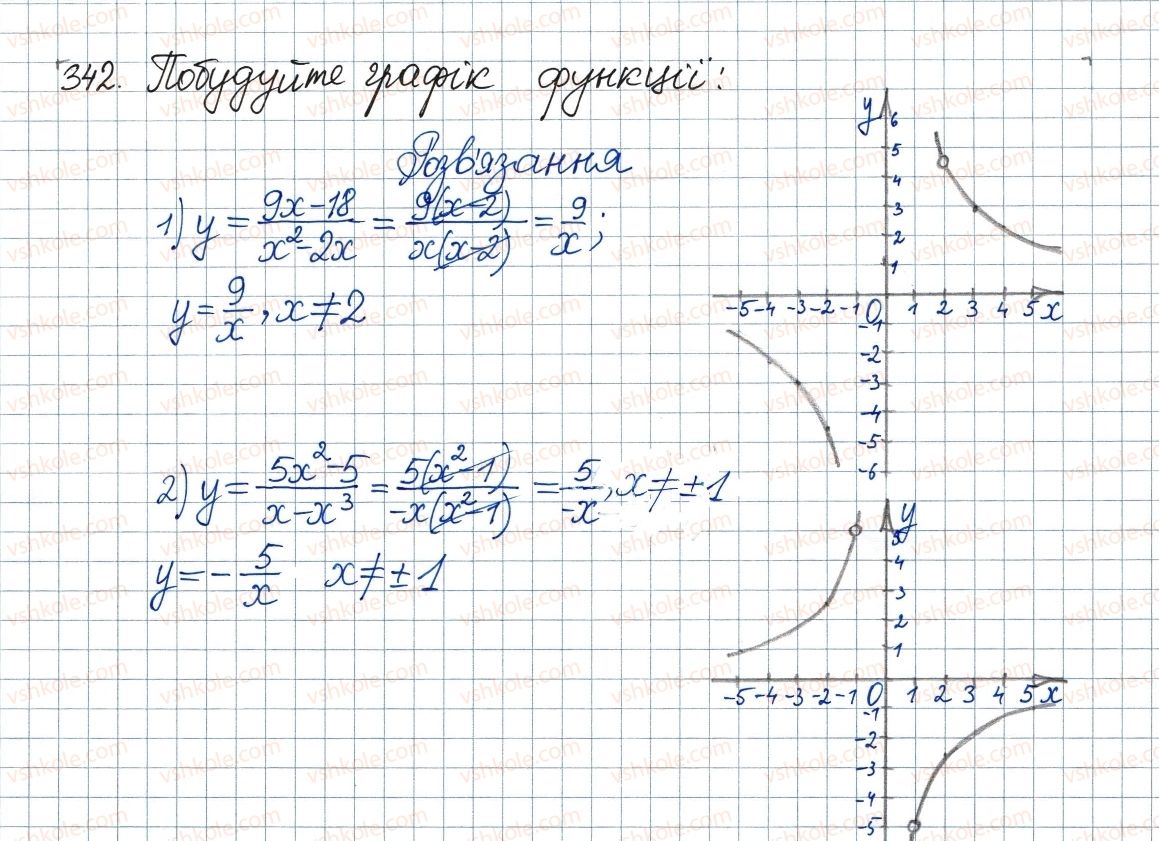 342. Побудуйте графік функції:
Розв'язання
1) y = (9x-18)/(x²-2x) = 9(x-2)/x(x-2) = 9/x;
y = 9/x, x ≠ 2
2) y = (5x²-5)/(x-x³) = 5(x²-1)/-x(x²-1) = 5/-x, x ≠ ±1
y = - 5/x x ≠ ±1
y
6
5
4
3
2
1
-5 -4 -3 -2 -1 0 1 2 3 4 5 x
-1
-2
-3
-4
-5
-6
y
5
4
3
2
1
-5 -4 -3 -2 -1 0 1 2 3 4 5 x
-1
-2
-3
-4
-5
vshkole.com